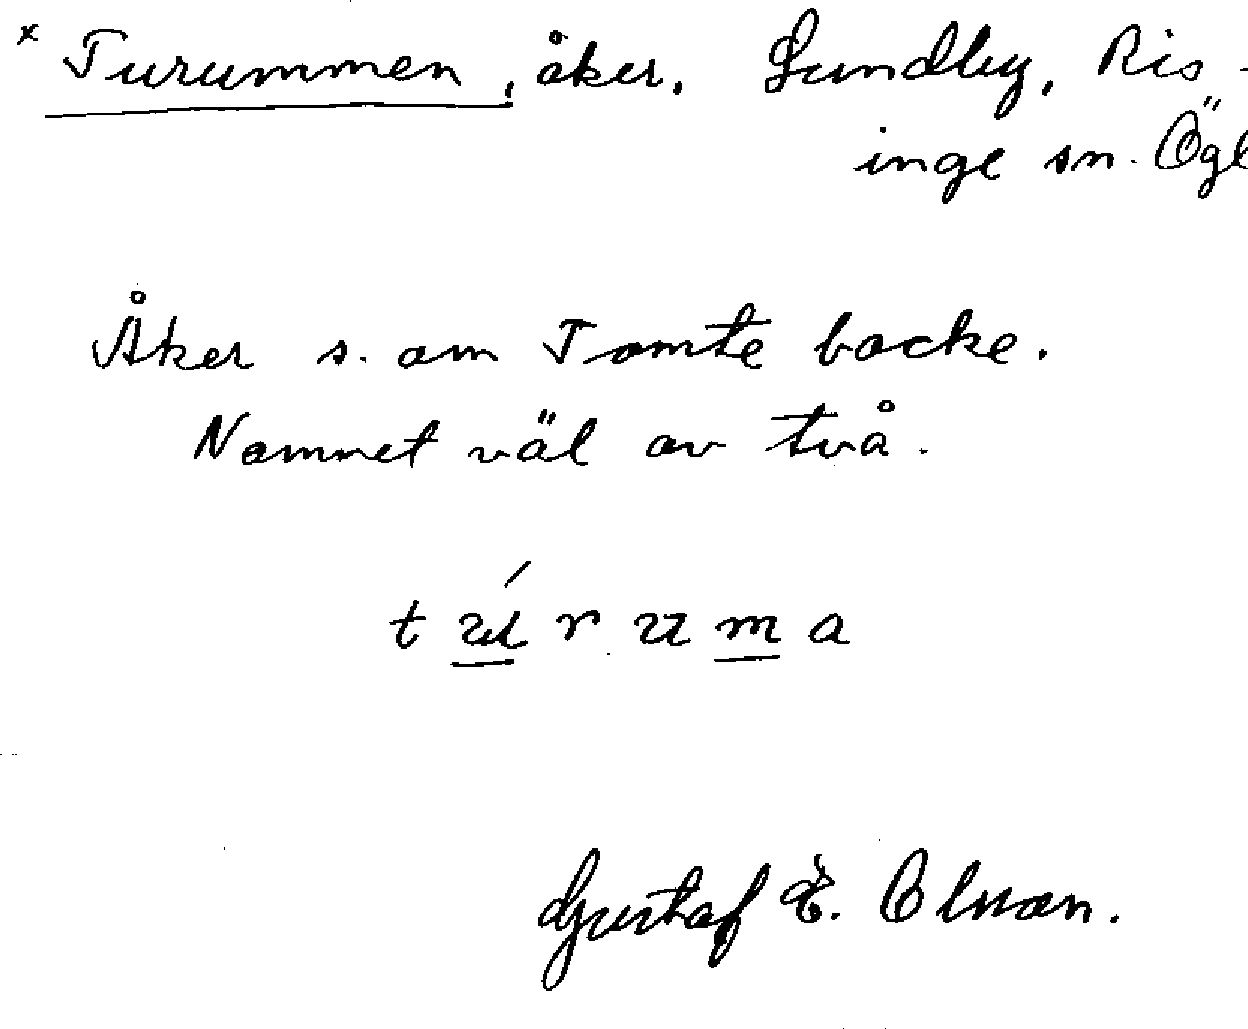 x Turummen, åker. Lundby, Ris-
inge sn. Ögl
Åker s. om Tomte backe.
Namnet väl av två.
t ú r u m a
Gustaf E. Olsson.